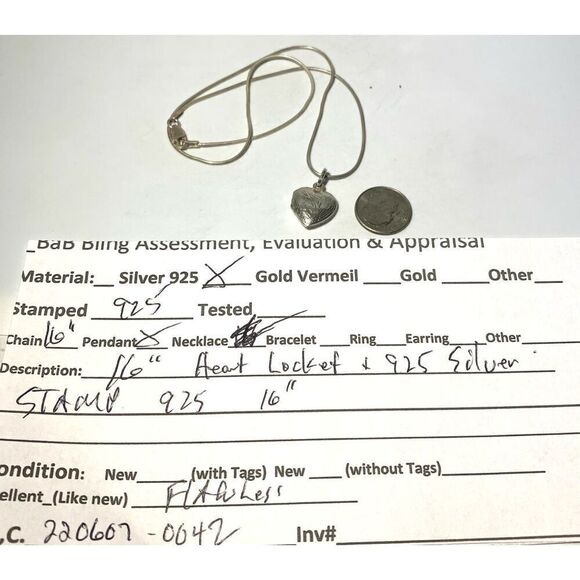 BaB Bling Assessment, Evaluation & Appraisal
Material:__ Silver 925 X Gold Vermeil ____Gold ____Other___
Stamped 925 Tested______
Chain 16" Pendant X Necklace Bracelet ___Ring___Earring___Other___
Description: 16" Heart Locket & 925 Silver
STAMP 925 16"
ondition: New____(with Tags) New ____ (without Tags)_______
ellent_(Like new) Flawless
.C. 220607-0042 Inv#______